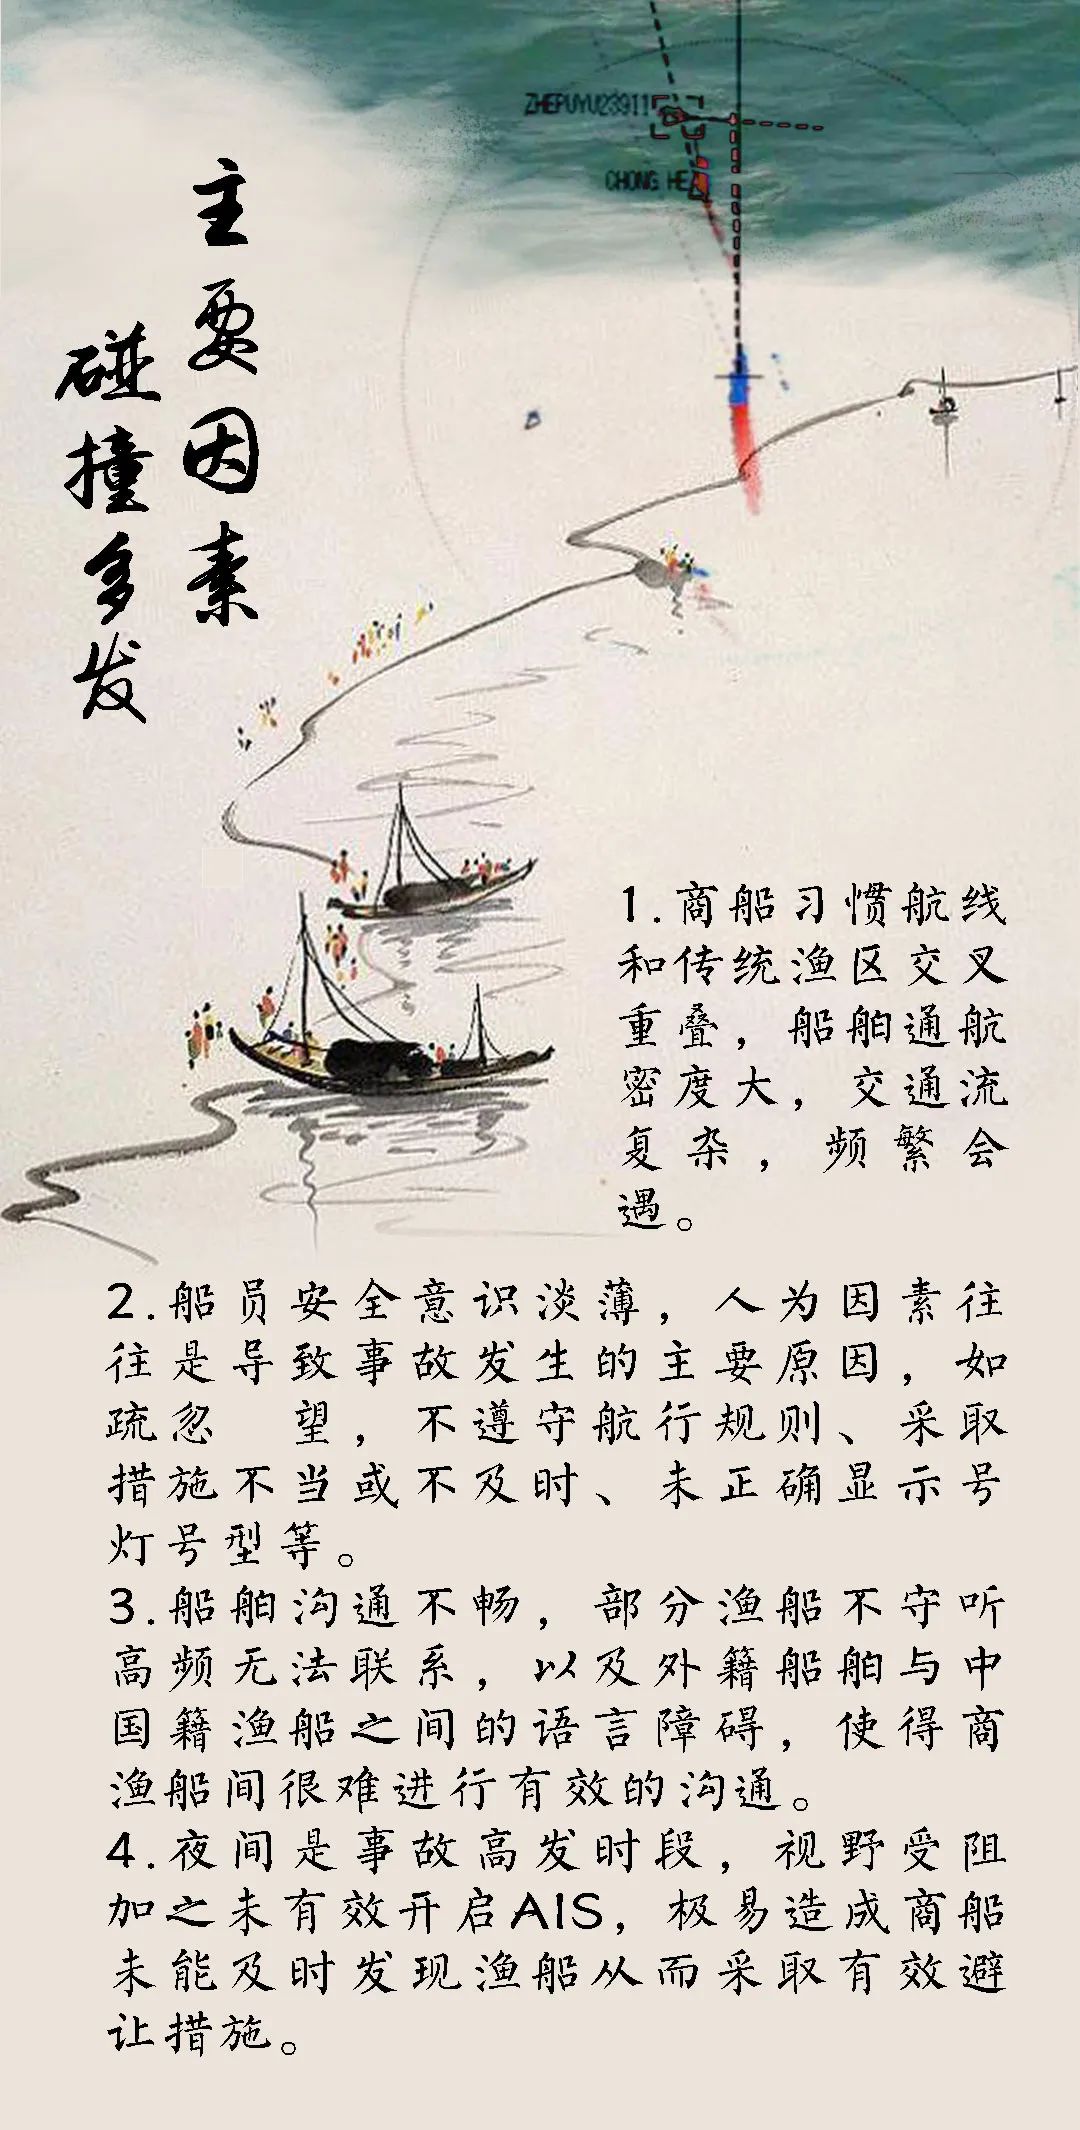 ZHEPUYU23911
CHONG HE
碰撞多发
主要因素
1.商船习惯航线
和传统渔区交叉
重叠，船舶通航
密度大，交通流
复杂，频繁会
遇。
2.船员安全意识淡薄，人为因素往
往是导致事故发生的主要原因，如
疏忽 望，不遵守航行规则、采取
措施不当或不及时、未正确显示号
灯号型等。
3.船舶沟通不畅，部分渔船不守听
高频无法联系，以及外籍船舶与中
国籍渔船之间的语言障碍，使得商
渔船间很难进行有效的沟通。
4.夜间是事故高发时段，视野受阻
加之未有效开启AIS，极易造成商船
未能及时发现渔船从而采取有效避
让措施。